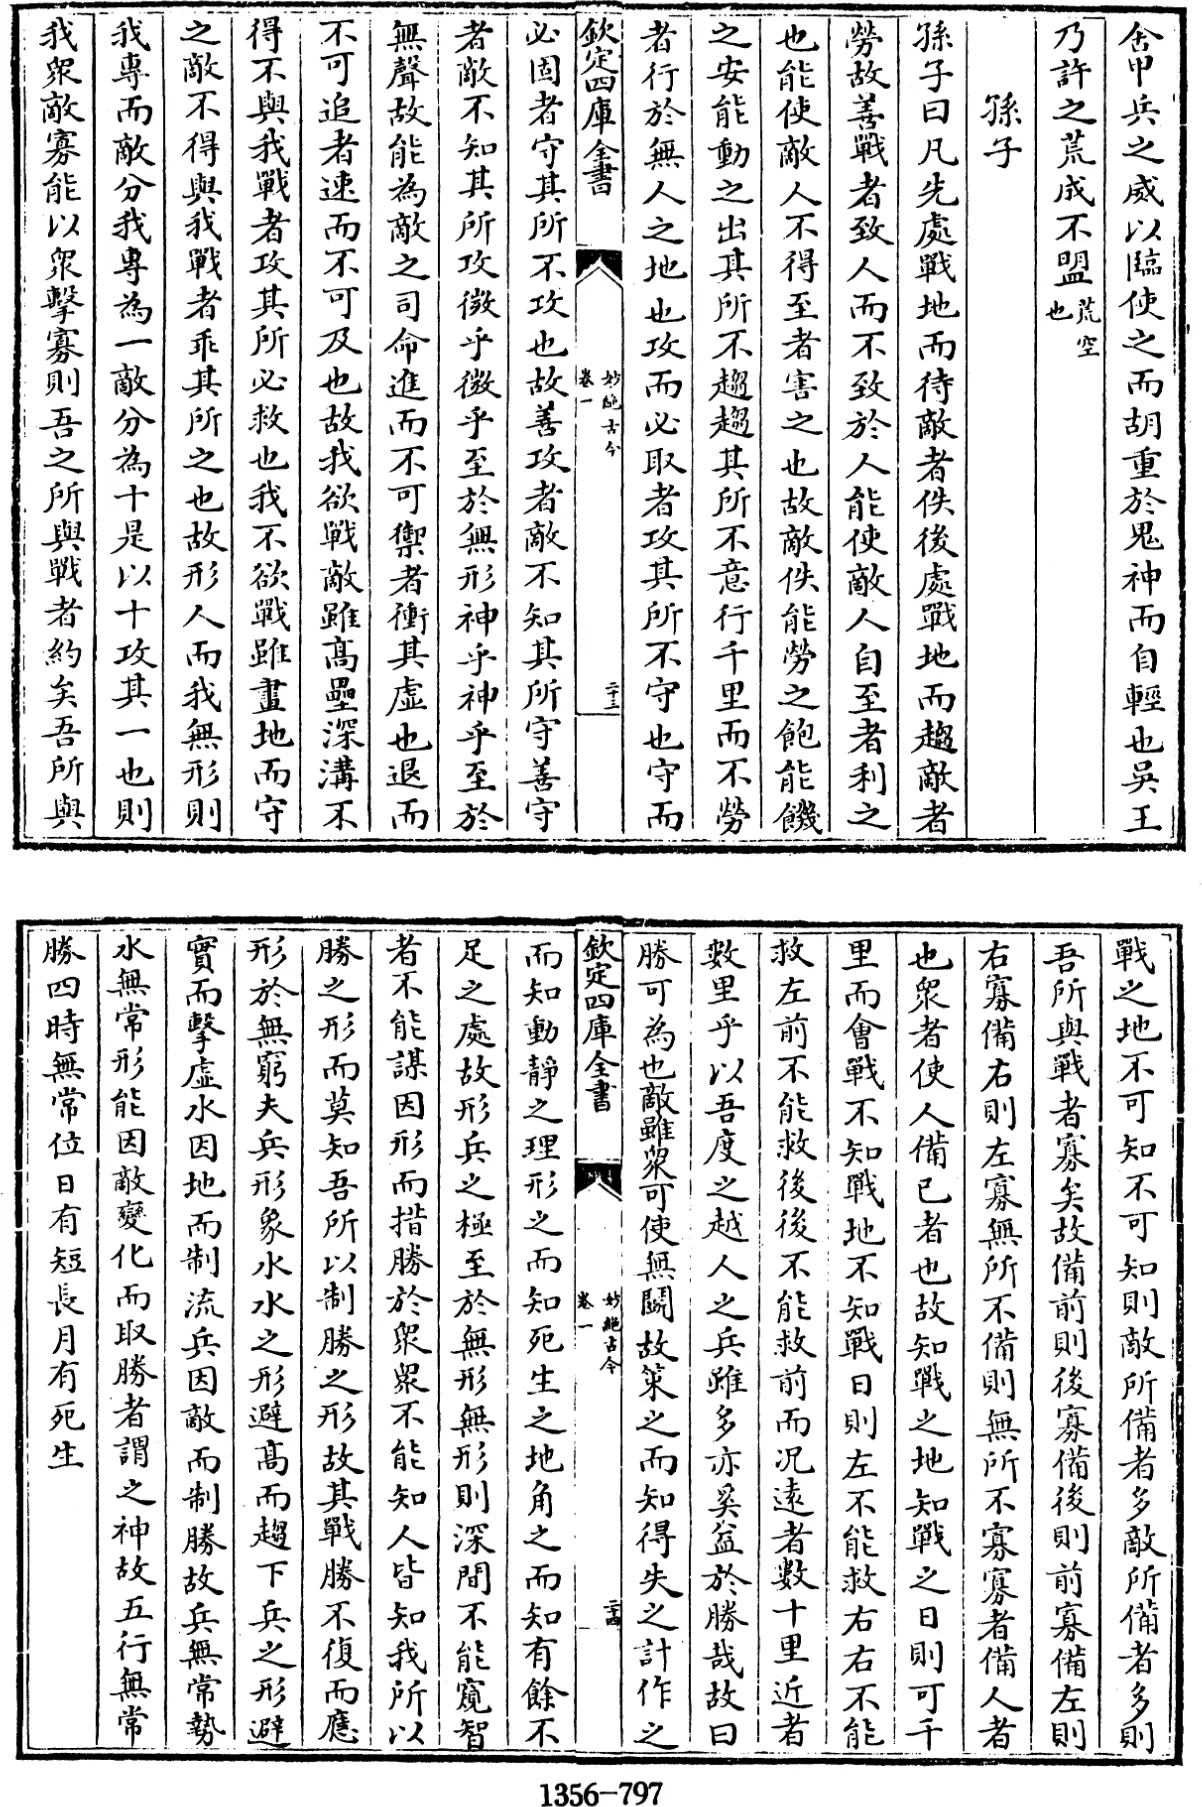 舍甲兵之威以臨使之而胡重於鬼神而自輕也吳王
乃許之荒成不盟荒空也
孫子
孫子曰凡先處戰地而待敵者佚後處戰地而趨敵者
勞故善戰者致人而不致於人能使敵人自至者利之
也能使敵人不得至者害之也故敵佚能勞之飽能饑
之安能動之出其所不趨趨其所不意行千里而不勞
者行於無人之地也攻而必取者攻其所不守也守而
欽定四庫全書
妙絶古今
卷一
二十三
必固者守其所不攻也故善攻者敵不知其所守善守
者敵不知其所攻微乎微乎至於無形神乎神乎至於
無聲故能為敵之司命進而不可禦者衝其虛也退而
不可追者速而不可及也故我欲戰敵雖高壘深溝不
得不與我戰者攻其所必救也我不欲戰雖畫地而守
之敵不得與我戰者乖其所之也故形人而我無形則
我專而敵分我專為一敵分為十是以十攻其一也則
我衆敵寡能以衆擊寡則吾之所與戰者約矣吾所與
戰之地不可知不可知則敵所備者多敵所備者多則
吾所與戰者寡矣故備前則後寡備後則前寡備左則
右寡備右則左寡無所不備則無所不寡寡者備人者
也衆者使人備已者也故知戰之地知戰之日則可千
里而會戰不知戰地不知戰日則左不能救右右不能
救左前不能救後後不能救前而况遠者數十里近者
數里乎以吾度之越人之兵雖多亦奚益於勝哉故曰
勝可為也敵雖衆可使無鬭故策之而知得失之計作之
欽定四庫全書
妙絶古今
卷一
二十四
而知動靜之理形之而知死生之地角之而知有餘不
足之處故形兵之極至於無形無形則深間不能窺智
者不能謀因形而措勝於衆衆不能知人皆知我所以
勝之形而莫知吾所以制勝之形故其戰勝不復而應
形於無窮夫兵形象水水之形避高而趨下兵之形避
實而擊虛水因地而制流兵因敵而制勝故兵無常勢
水無常形能因敵變化而取勝者謂之神故五行無常
勝四時無常位日有短長月有死生
1356-797